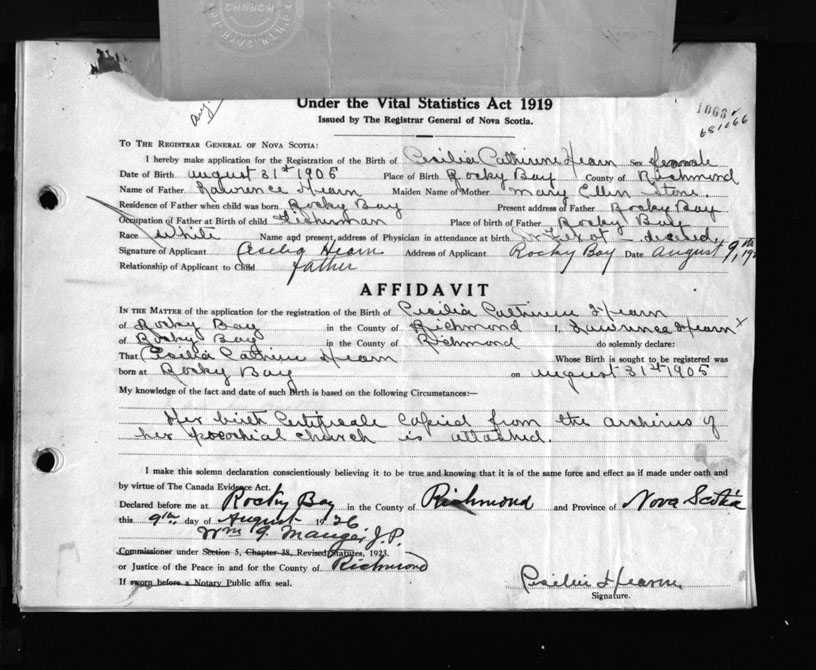 CHURCH
Under the Vital Statistics Act 1919
Issued by The Registrar General of Nova Scotia.
TO THE REGISTRAR GENERAL OF NOVA SCOTIA:
I hereby make application for the Registration of the Birth of Cecilia Cathrine Hearn Sex female
Date of Birth August 31st 1905 Place of Birth Rocky Bay County of Richmond
Name of Father Lawrence Hearn Maiden Name of Mother Mary Ellen Stone
Residence of Father when child was born Rocky Bay Present address of Father Rocky Bay
Occupation of Father at Birth of child Fisherman Place of birth of Father Rocky Bay
Race White Name and present address of Physician in attendance at birth
Signature of Applicant Hearn Address of Applicant Rocky Bay Date August 9th, 192
Relationship of Applicant to Child father
AFFIDAVIT
IN THE MATTER of the application for the registration of the Birth of Cecilia Cathrine Hearn
of Rocky Bay in the County of Richmond I, Lawrence Hearn x
of Rocky Bay in the County of Richmond do solemnly declare:
That Cecilia Cathrine Hearn Whose Birth is sought to be registered was
born at Rocky Bay on August 31st 1905
My knowledge of the fact and date of such Birth is based on the following Circumstances:—
Her birth Certificate Copied from the archives of
her parochial church is attached.
I make this solemn declaration conscientiously believing it to be true and knowing that it is of the same force and effect as if made under oath and
by virtue of The Canada Evidence Act.
Declared before me at Rocky Bay in the County of Richmond and Province of Nova Scotia
this 9th day of August 1926
Wm G. Mauger J.P.
Commissioner under Section 5, Chapter 38, Revised Statutes, 1923.
or Justice of the Peace in and for the County of Richmond
If sworn before a Notary Public affix seal.
Cecilia Hearn
Signature.